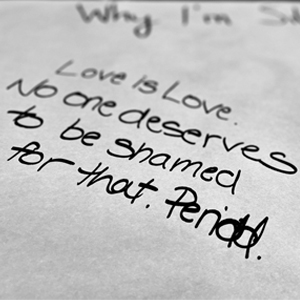 Why I'm
Love is Love.
No one deserves
to be shamed
for that. Period.